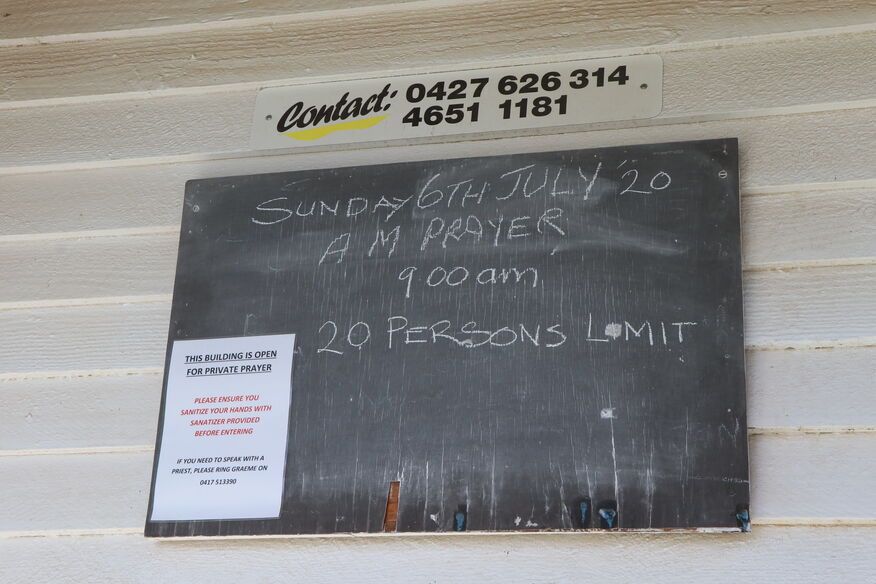 Contact: 0427 626 314
4651 1181
SUNDAY 6TH JULY '20
A M PRAYER
9 00 am
20 PERSONS LIMIT
THIS BUILDING IS OPEN
FOR PRIVATE PRAYER
PLEASE ENSURE YOU
SANITIZE YOUR HANDS WITH
SANATIZER PROVIDED
BEFORE ENTERING
IF YOU NEED TO SPEAK WITH A
PRIEST, PLEASE RING GRAEME ON
0417 513390